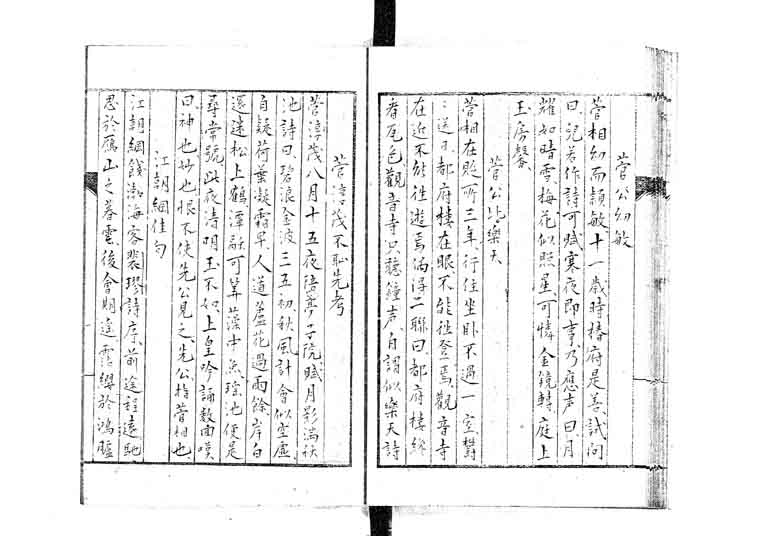 菅公幼敏
菅相幼而穎敏十一歳時椿府是善試問
曰児若作詩可賦寒夜即事乃應声曰月
耀如晴雪梅花似照星可憐金鏡轉庭上
玉房馨
菅公比樂天
菅相在貶所三年行住坐臥不過一室
送日都府樓在眼不能往登焉觀音寺
在近不能往遊焉偶浮二聯曰都府樓纔
看瓦色觀音寺只聴鐘声自謂似樂天詩
菅淳茂不恥先考
菅淳茂八月十五夜陪亭子院賦月影満秋
池詩曰碧浪金波三五初秋風計會似空虚
自疑荷葉凝霜早人道蘆花過雨餘岸白
還迷松上鶴潭融可算藻中魚瑶池便是
尋常號此夜清明玉不如上皇吟誦数回嘆
曰神也妙也恨不使先公見之先公指菅相也
江朝綱佳句
江朝綱餞渤海客裴璆詩序前途程遠馳
思於鴈山之暮雲後會期遥霑纓於鴻臚